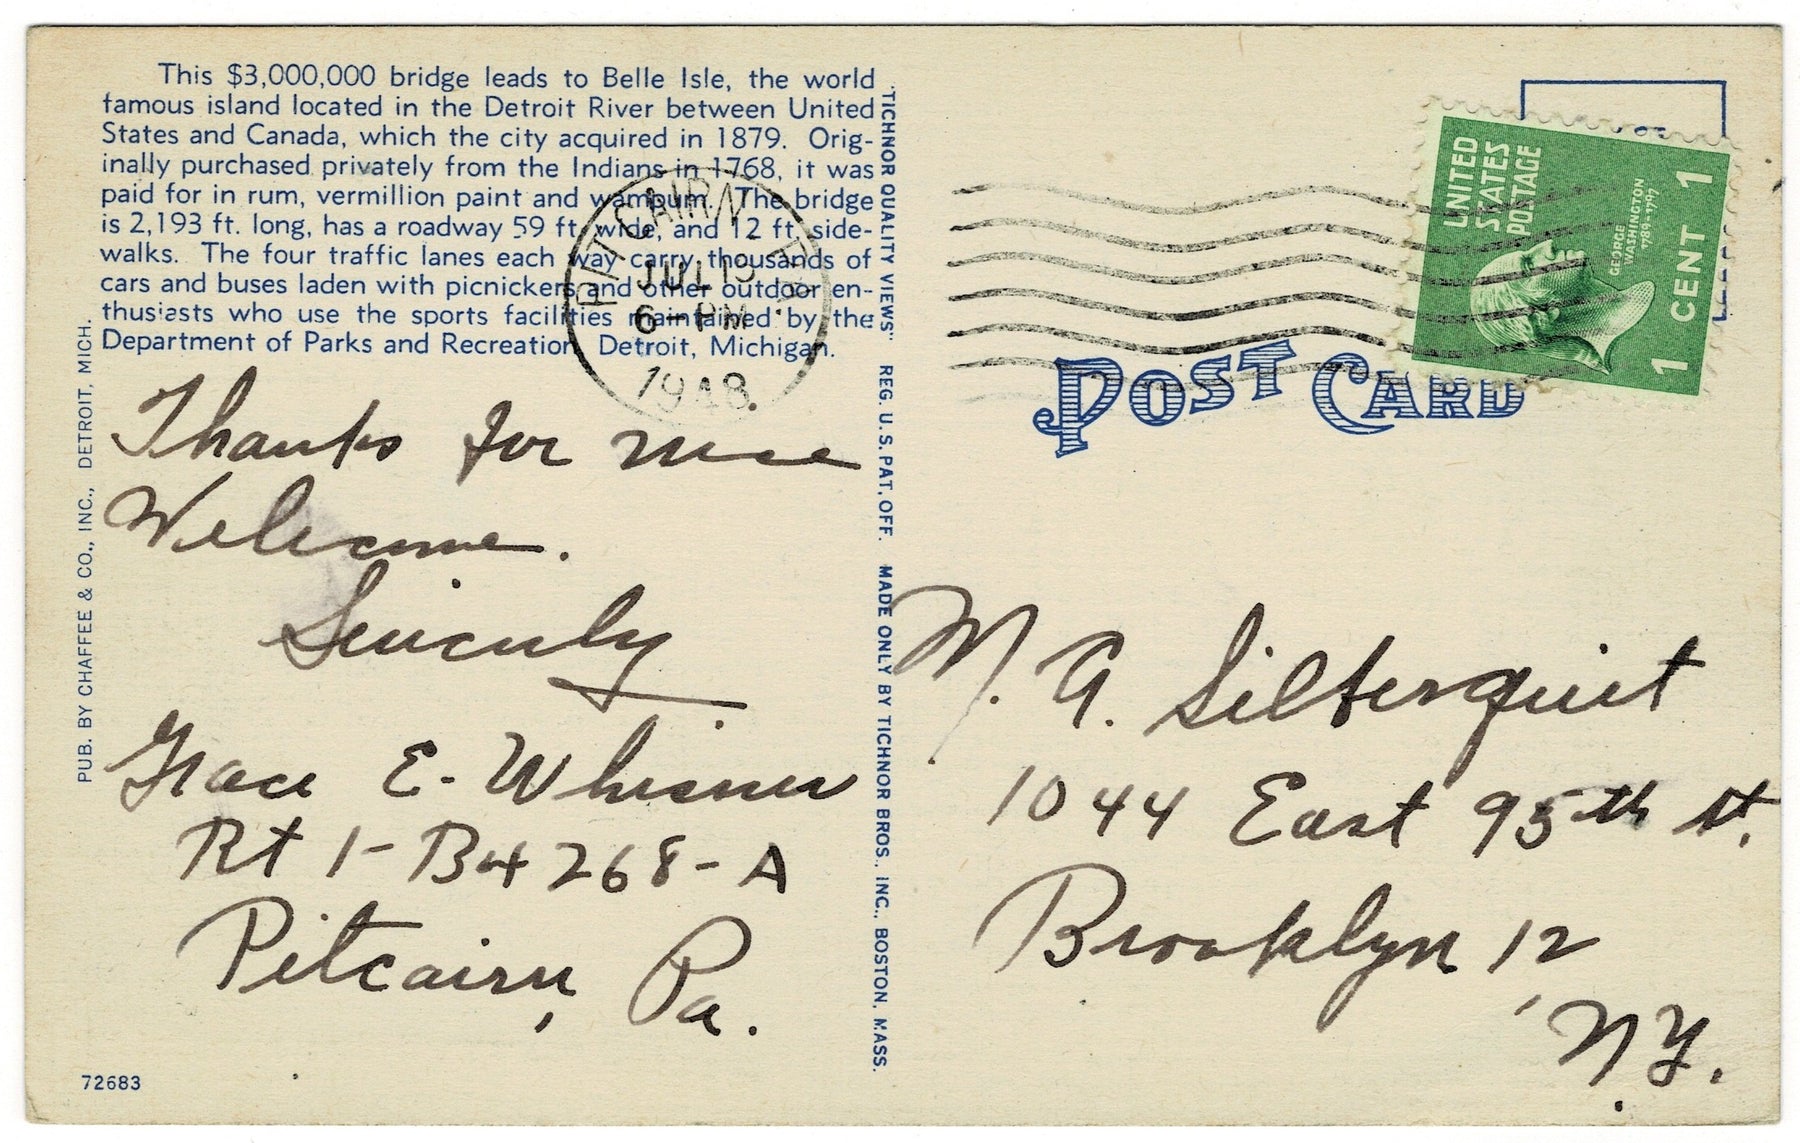 This $3,000,000 bridge leads to Belle Isle, the world
famous island located in the Detroit River between United
States and Canada, which the city acquired in 1879. Orig-
inally purchased privately from the Indians in 1768, it was
paid for in rum, vermillion paint and wampum. The bridge
is 2,193 ft. long, has a roadway 59 ft. wide, and 12 ft. side-
walks. The four traffic lanes each way carry thousands of
cars and buses laden with picnickers and other outdoor en-
thusiasts who use the sports facilities maintained by the
Department of Parks and Recreation, Detroit, Michigan.
PITCAIRN PA.
JUL 19
6 - PM
1948
Thanks for nice
Welcome.
Sincerly
Grace E. Whisner
Rt 1 - B4 268 - A
Pitcairn, Pa.
72683
PUB. BY CHAFFEE & CO., INC., DETROIT, MICH.
"TICHNOR QUALITY VIEWS" REG. U.S. PAT. OFF. MADE ONLY BY TICHNOR BROS., INC., BOSTON, MASS.
UNITED
STATES
POSTAGE
GEORGE
WASHINGTON
1789-1797
1 CENT 1
POST CARD
M. A. Silberquit
1044 East 95th St.
Brooklyn 12
N.Y.